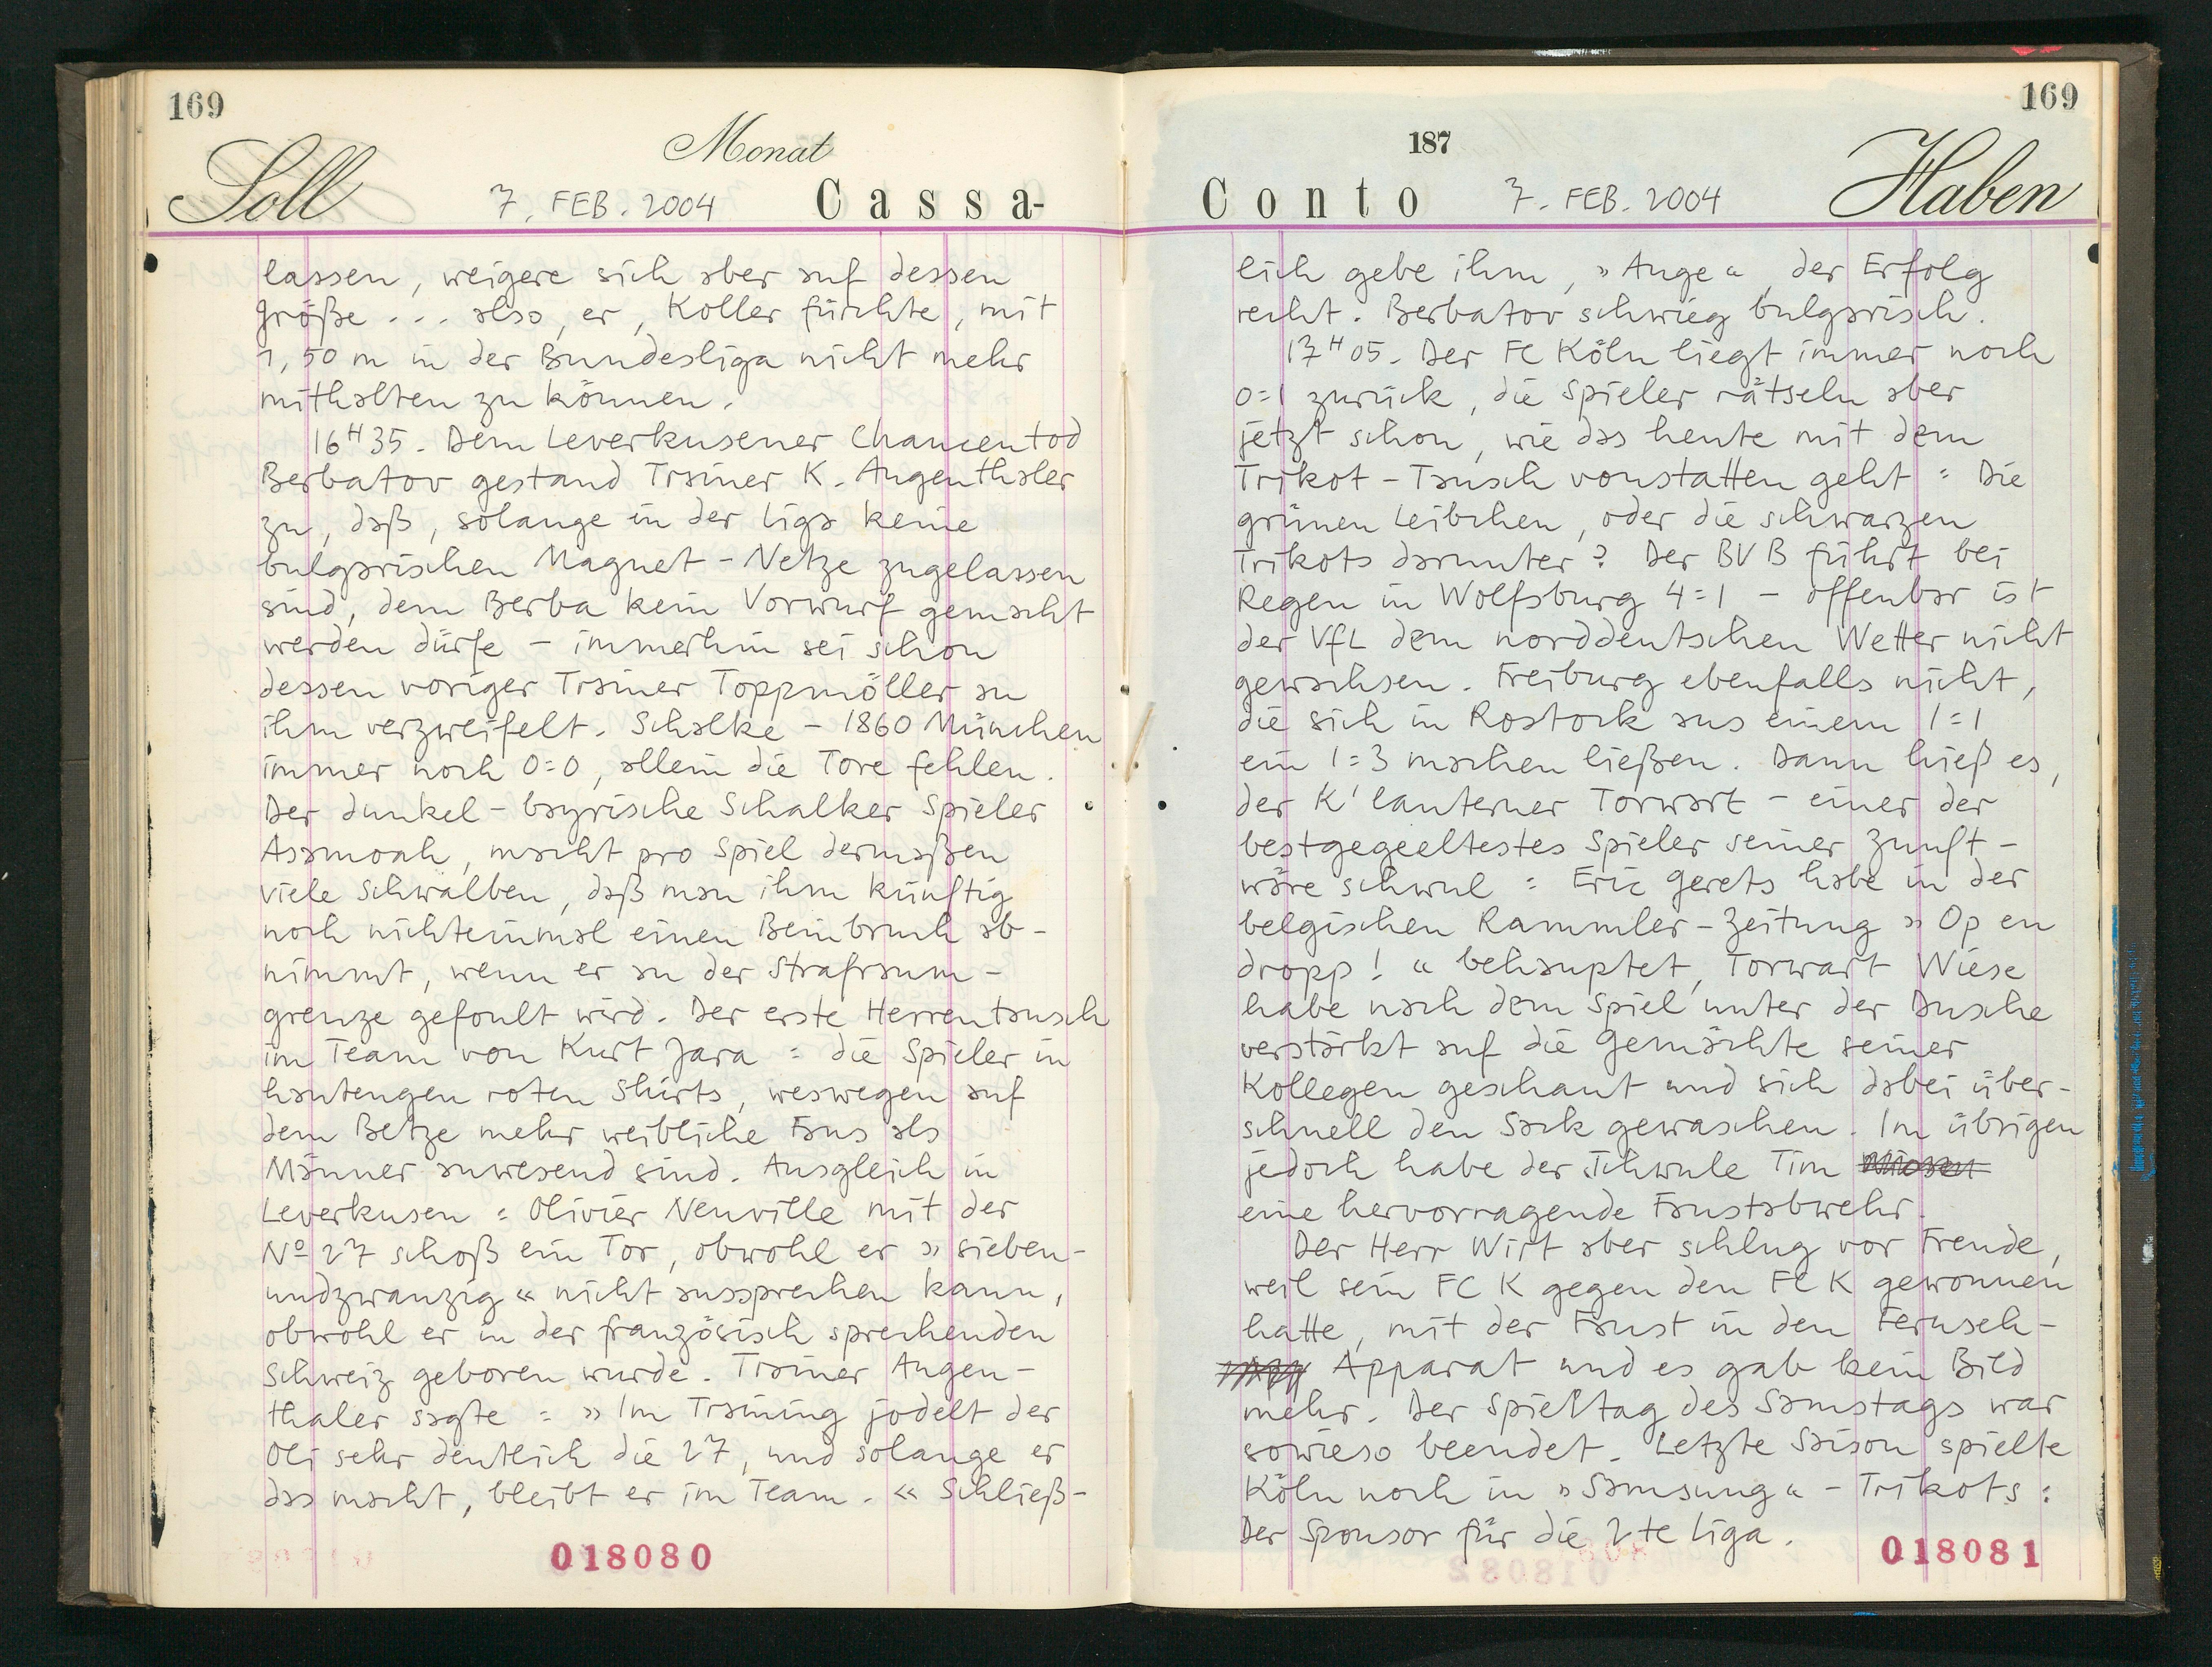 169
Soll
Monat
7. FEB. 2004
Cassa-
lassen, weigere sich aber auf dessen
Größe ... also, er, Koller fürchte, mit
1,50 m in der Bundesliga nicht mehr
mithalten zu können.
16H35. Dem Leverkusener Chancentod
Berbatov gestand Trainer K. Augenthaler
zu, daß, solange in der Liga keine
bulgarischen Magnet-Netze zugelassen
sind, dem Berba kein Vorwurf gemacht
werden dürfe – immerhin sei schon
dessen voriger Trainer Toppmöller an
ihm verzweifelt. Schalke – 1860 München
immer noch 0=0, allein die Tore fehlen.
Der dunkel-bayrische Schalker Spieler
Asamoah, macht pro Spiel dermaßen
viele Schwalben, daß man ihm künftig
noch nichteinmal einen Beinbruch ab-
nimmt, wenn er an der Strafraum-
grenze gefoult wird. Der erste Herrentausch
im Team von Kurt Jara = die Spieler in
hautengen roten Shirts, weswegen auf
dem Betze mehr weibliche Fans als
Männer anwesend sind. Ausgleich in
Leverkusen = Olivier Neuville mit der
Nº 27 schoß ein Tor, obwohl er »sieben-
undzwanzig« nicht aussprechen kann,
obwohl er in der französisch sprechenden
Schweiz geboren wurde. Trainer Augen-
thaler sagte = »Im Training jodelt der
Oli sehr deutlich die 27, und solange er
das macht, bleibt er im Team.« Schließ-
018080
169
187
Conto
7. FEB. 2004
Haben
lich gebe ihm, »Auge«, der Erfolg
recht. Berbatov schwieg bulgarisch.
17H05. Der FC Köln liegt immer noch
0=1 zurück, die Spieler rätseln aber
jetzt schon, wie das heute mit dem
Trikot-Tausch vonstatten geht = Die
grünen Leibchen, oder die schwarzen
Trikots darunter? Der BVB führt bei
Regen in Wolfsburg 4=1 – offenbar ist
der VfL dem norddeutschen Wetter nicht
gewachsen. Freiburg ebenfalls nicht,
die sich in Rostock aus einem 1=1
ein 1=3 machen ließen. Dann hieß es,
der K'lauterner Torwart – einer der
bestgegeeltestes Spieler seiner Zunft –
wäre schwul = Eric Gerets habe in der
belgischen Rammler-Zeitung »Op en
dropp!« behauptet, Torwart Wiese
habe nach dem Spiel unter der Dusche
verstärkt auf die Gemächte seiner
Kollegen geschaut und sich dabei über-
schnell den Sack gewaschen. Im übrigen
jedoch habe der Schwule Tim
eine hervorragende Faustabwehr.
Der Herr Wirt aber schlug vor Freude,
weil sein FC K gegen den FC K gewonnen
hatte, mit der Faust in den Fernseh-
Apparat und es gab kein Bild
mehr. Der Spieltag des Samstags war
sowieso beendet. Letzte Saison spielte
Köln noch in »Samsung«-Trikots:
Der Sponsor für die 2te Liga.
018081